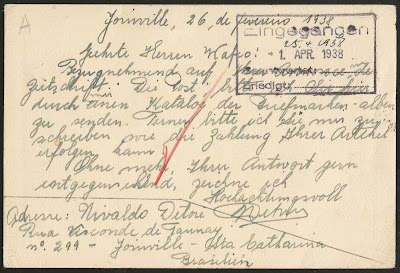 A
Joinville, 26, de fevereiro 1938
Geehrte Herren Kafes!
Eingegangen
25, 4 1938
1. APR. 1938
Erledigt:
Bezugnehmend auf Ihre
Zeitschrift " Die Post
durch einen Katalog der Briefmarken-alben
zu senden. Ferner, bitte ich Sie mir zu
schreiben wie die Zahlung Ihrer Artikel
erfolgen kann.
Ohne mehr, Ihrer Antwort gern
entgegensehend, zeichne ich
Hochachtungsvoll
Adresse: Nivaldo Detoie
Rua Visconde de Taunay
nº. 299 - Joinville - Sta Catharina
Brasilien